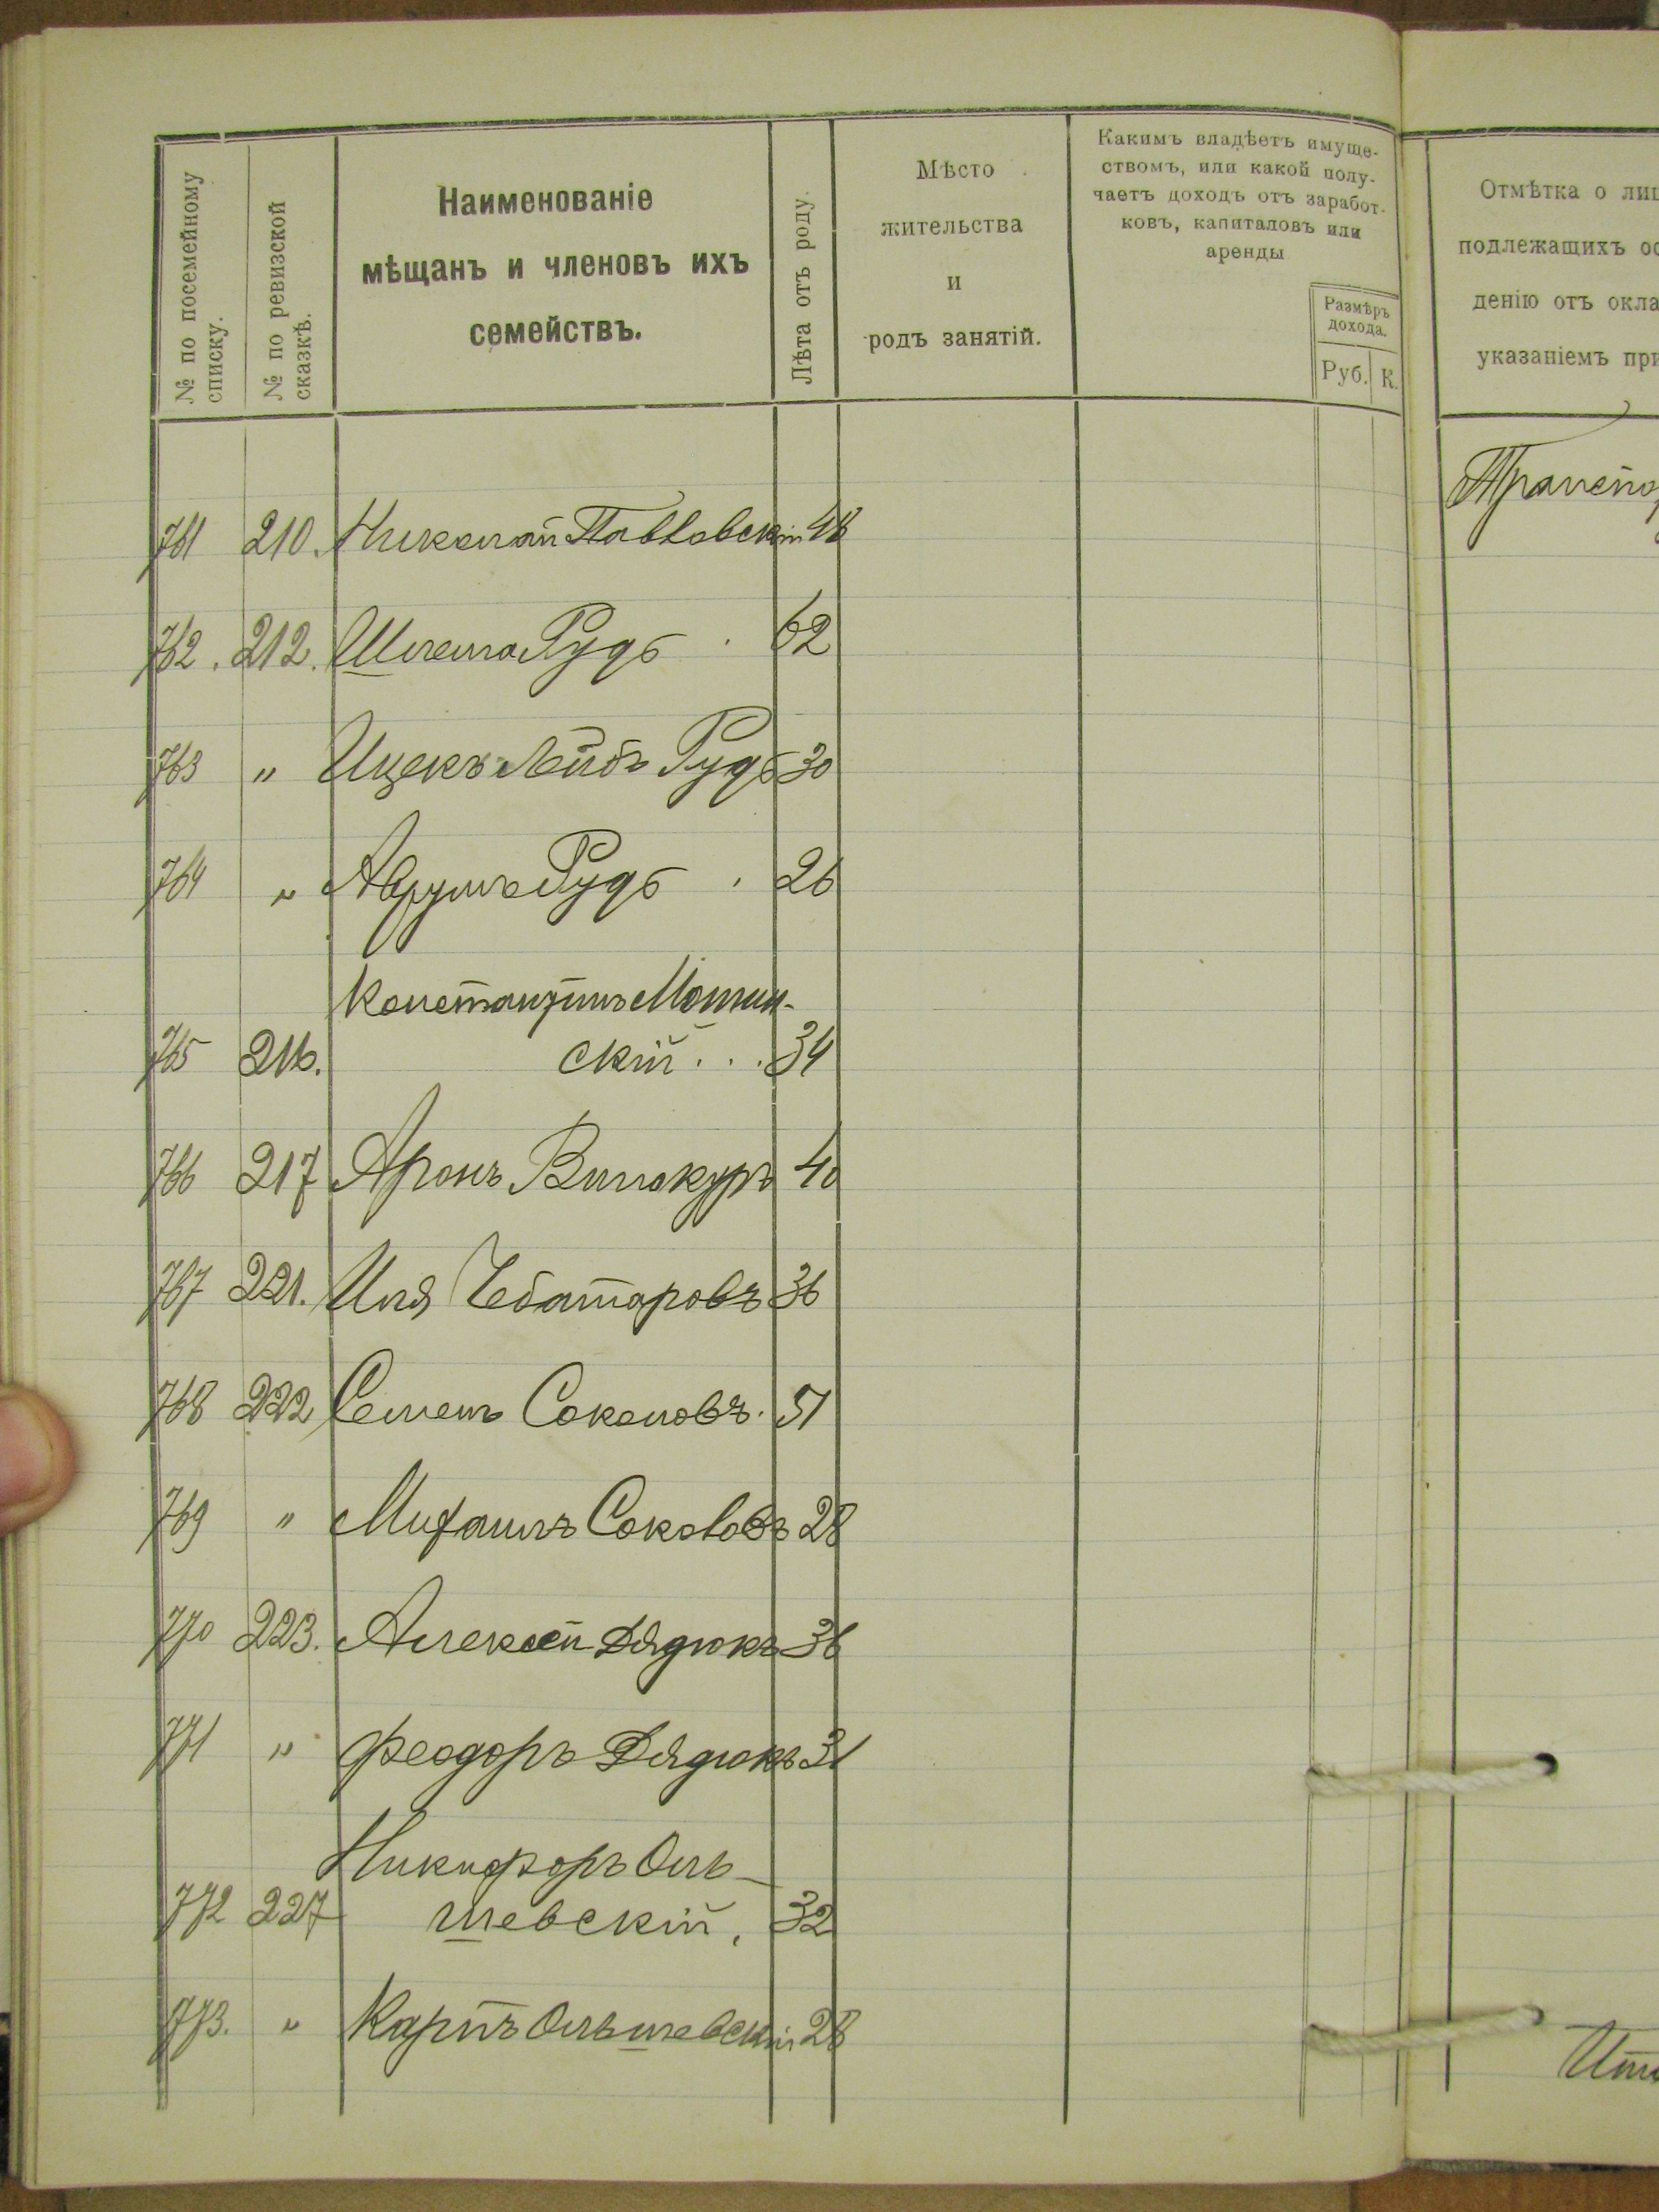 № по посемейному
списку.
№ по ревизской
сказкѣ.
Наименованіе
мѣщанъ и членовъ ихъ
семействъ.
Лѣта отъ роду.
Мѣсто
жительства
и
родъ занятій.
Какимъ владѣетъ имуще-
ствомъ, или какой полу-
чаетъ доходъ отъ заработ-
ковъ, капиталовъ или
аренды
Размѣръ
дохода.
Руб. К.
Отмѣтка о лиц
подлежащихъ ос
денію отъ окла
указаніемъ при
761 210. Николай Павловскій 48
762. 212. Шлема Рудь 62
763 " Ицекъ Лейбъ Рудь 30
764 " Аврумъ Рудь 26
Константинъ
765 216. скій . . . 34
766 217 Аронъ Винокуръ 40
767 221. Илія Чеботаровъ 36
768 222 Семенъ Соколовъ. 51
769 " Михаилъ Соколовъ 28
770 223. Алексѣй Дядюкъ 36
771 " Феодоръ Дядюкъ 31
Никифоръ Оль-
772 227 шевскій. 32
773. " Карпъ Ольшевскій 28